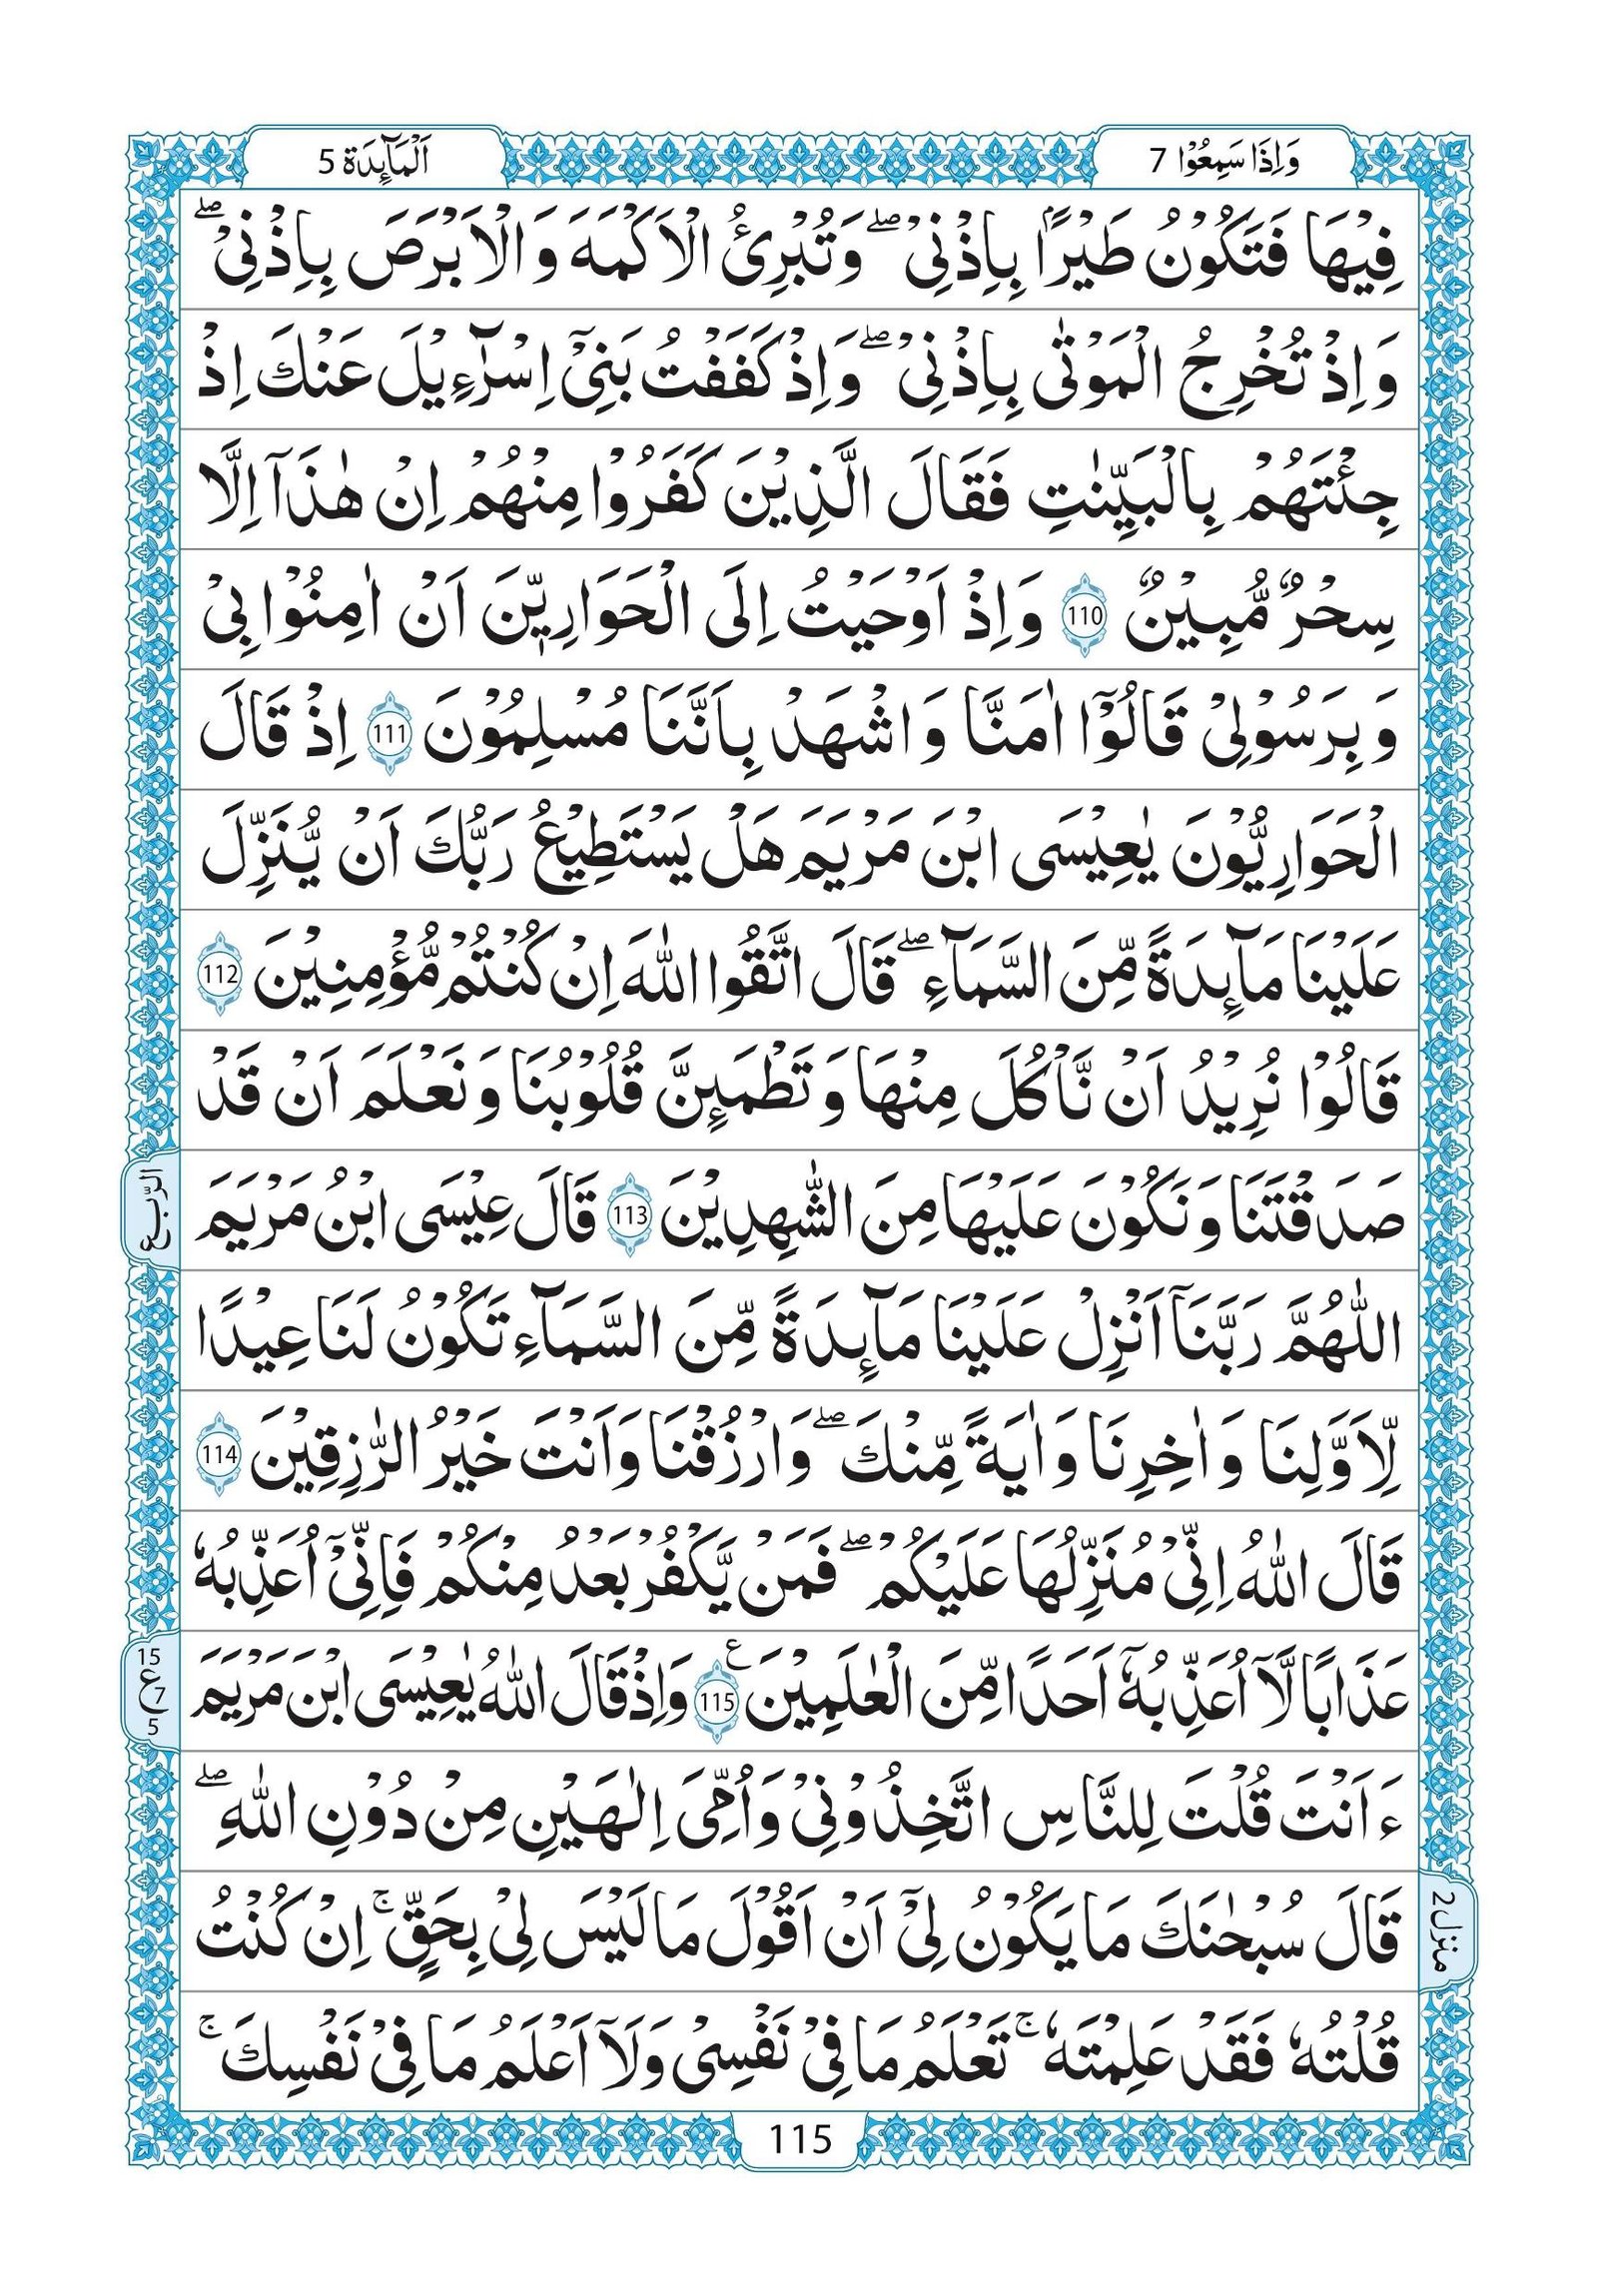 وَاِذَا سَمِعُوْا 7
اَلْمَآئِدَة 5
فِيْهَا فَتَكُوْنُ طَيْرًۢا بِاِذْنِىْ ۖ وَتُبْرِئُ الْاَكْمَهَ وَالْاَبْرَصَ بِاِذْنِىْ ۖ
وَاِذْ تُخْرِجُ الْمَوْتٰى بِاِذْنِىْ ۖ وَاِذْ كَفَفْتُ بَنِىْٓ اِسْرَآءِيْلَ عَنْكَ اِذْ
جِئْتَهُمْ بِالْبَيِّنٰتِ فَقَالَ الَّذِيْنَ كَفَرُوْا مِنْهُمْ اِنْ هٰذَآ اِلَّا
سِحْرٌ مُّبِيْنٌ 110 وَاِذْ اَوْحَيْتُ اِلَى الْحَوَارِيّٖنَ اَنْ اٰمِنُوْا بِىْ
وَبِرَسُوْلِىْ قَالُوْٓا اٰمَنَّا وَاشْهَدْ بِاَنَّنَا مُسْلِمُوْنَ 111 اِذْ قَالَ
الْحَوَارِيُّوْنَ يٰعِيْسَى ابْنَ مَرْيَمَ هَلْ يَسْتَطِيْعُ رَبُّكَ اَنْ يُّنَزِّلَ
عَلَيْنَا مَآئِدَةً مِّنَ السَّمَآءِ ۖ قَالَ اتَّقُوا اللّٰهَ اِنْ كُنْتُمْ مُّؤْمِنِيْنَ 112
قَالُوْا نُرِيْدُ اَنْ نَّاْكُلَ مِنْهَا وَتَطْمَئِنَّ قُلُوْبُنَا وَنَعْلَمَ اَنْ قَدْ
صَدَقْتَنَا وَنَكُوْنَ عَلَيْهَا مِنَ الشّٰهِدِيْنَ 113 قَالَ عِيْسَى ابْنُ مَرْيَمَ
الرّبع
اللّٰهُمَّ رَبَّنَآ اَنْزِلْ عَلَيْنَا مَآئِدَةً مِّنَ السَّمَآءِ تَكُوْنُ لَنَا عِيْدًا
لِّاَوَّلِنَا وَاٰخِرِنَا وَاٰيَةً مِّنْكَ ۖ وَارْزُقْنَا وَاَنْتَ خَيْرُ الرّٰزِقِيْنَ 114
قَالَ اللّٰهُ اِنِّىْ مُنَزِّلُهَا عَلَيْكُمْ ۖ فَمَنْ يَّكْفُرْ بَعْدُ مِنْكُمْ فَاِنِّىْٓ اُعَذِّبُهٗ
عَذَابًا لَّآ اُعَذِّبُهٗٓ اَحَدًا مِّنَ الْعٰلَمِيْنَ ع 115 وَاِذْ قَالَ اللّٰهُ يٰعِيْسَى ابْنَ مَرْيَمَ
15 ع 7 5
ءَاَنْتَ قُلْتَ لِلنَّاسِ اتَّخِذُوْنِىْ وَاُمِّىَ اِلٰهَيْنِ مِنْ دُوْنِ اللّٰهِ ۖ
قَالَ سُبْحٰنَكَ مَا يَكُوْنُ لِىْٓ اَنْ اَقُوْلَ مَا لَيْسَ لِىْ بِحَقٍّ ۚ اِنْ كُنْتُ
منزل 2
قُلْتُهٗ فَقَدْ عَلِمْتَهٗ ۚ تَعْلَمُ مَا فِىْ نَفْسِىْ وَلَآ اَعْلَمُ مَا فِىْ نَفْسِكَ ۚ
115